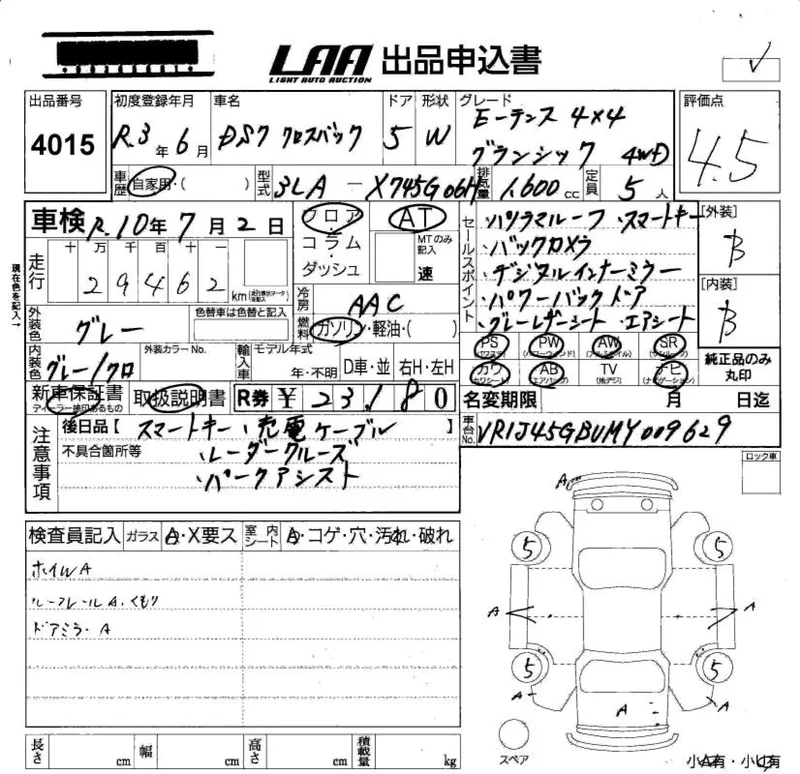 LAA 出品申込書
LIGHT AUTO AUCTION
出品番号 4015
初度登録年月 R.3年 6月
車名 DS7 クロスバック
ドア 5
形状 W
グレード E-テンス 4×4
グランシック 4WD
評価点 4.5
車歴 自家用・( )
型式 3LA-X745G06H
排気量 1,600cc
定員 5人
車検 R.10年7月2日
走行 十 万 千 百 十
29462km
(走行表示マークを記入)
フロア・コラム・ダッシュ
AT
MTのみ記入 速
セールスポイント
・パノラマルーフ ・スマートキー
・バックカメラ
・デジタルインナーミラー
・パワーバックドア
・グレーレザーシート ・エアシート
[外装] B
[内装] B
冷房 AAC
燃料 ガソリン・軽油・( )
外装色 グレー
色替車は色替と記入
現在色を記入→
内装色 グレー/クロ
外装カラーNo.
輸入車 モデル年式 年・不明
D車・並 右H・左H
PS (パワステ) PW (パワーウィンド) AW (アルミホイル) SR (サンルーフ)
カワ (カワシート) AB (エアバッグ) TV (地デジ) ナビ (ナビゲーション)
純正品のみ丸印
新車保証書 ディーラー捺印あるもの
取扱説明書
R券 ¥ 23180
名変期限 月 日迄
注意事項
後日品【 スマートキー、充電ケーブル 】
不具合箇所等 ・レーダークルーズ
・パークアシスト
車台No. VR1J45GBUMY009629
ロック車
検査員記入 ガラス A・X要ス 室内シート A・コゲ・穴・汚れ・破れ
ホイルA
ルーフレールA、くもり
ドアミラーA
A
5 5
A A
5 5
A A
A
スペア
小A有・小U有
長さ cm 幅 cm 高さ cm 積載量 kg